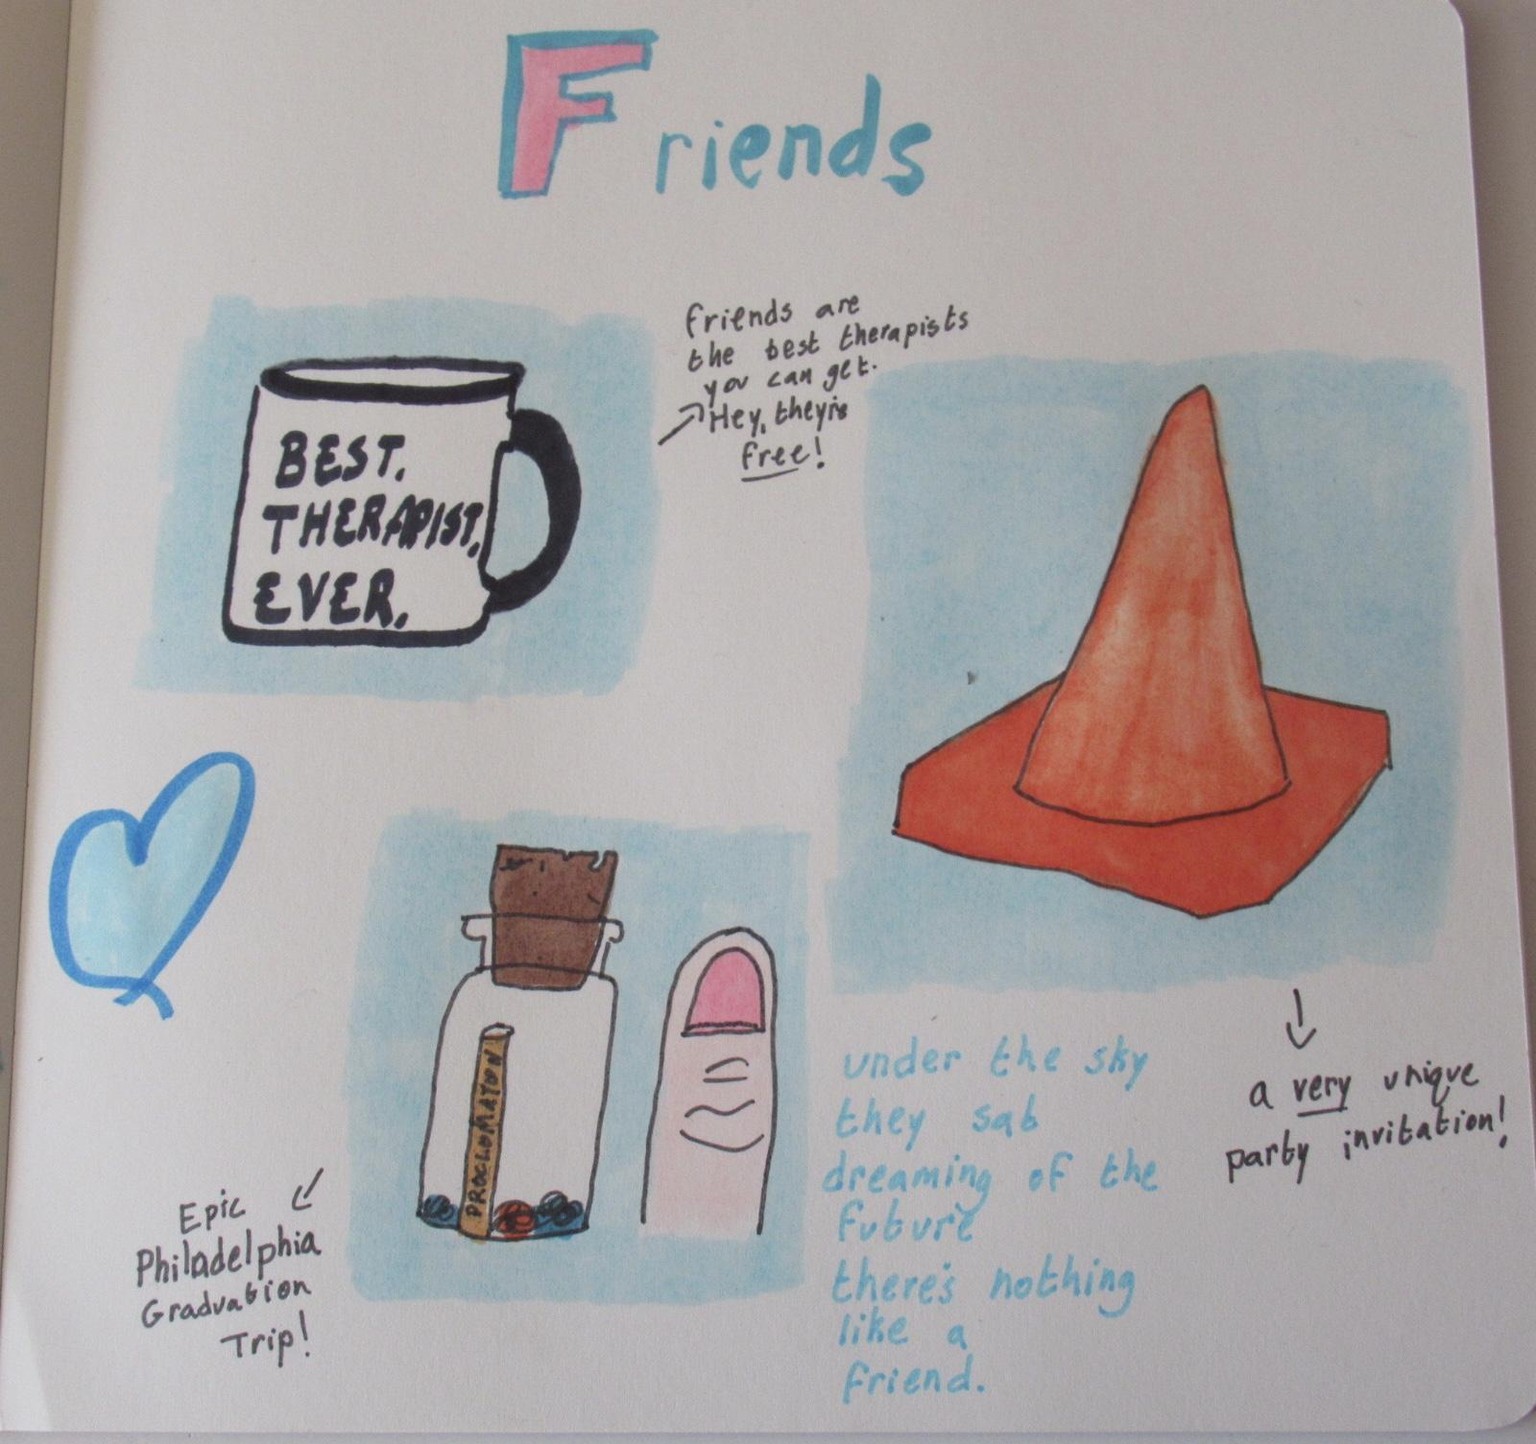 Friends
friends are
the best therapists
you can get.
Hey, they're
free!
BEST.
THERAPIST.
EVER.
PROCLOMATION
Epic
Philadelphia
Graduation
Trip!
under the sky
they sat
dreaming of the
future
there's nothing
like a
friend.
a very unique
party invitation!